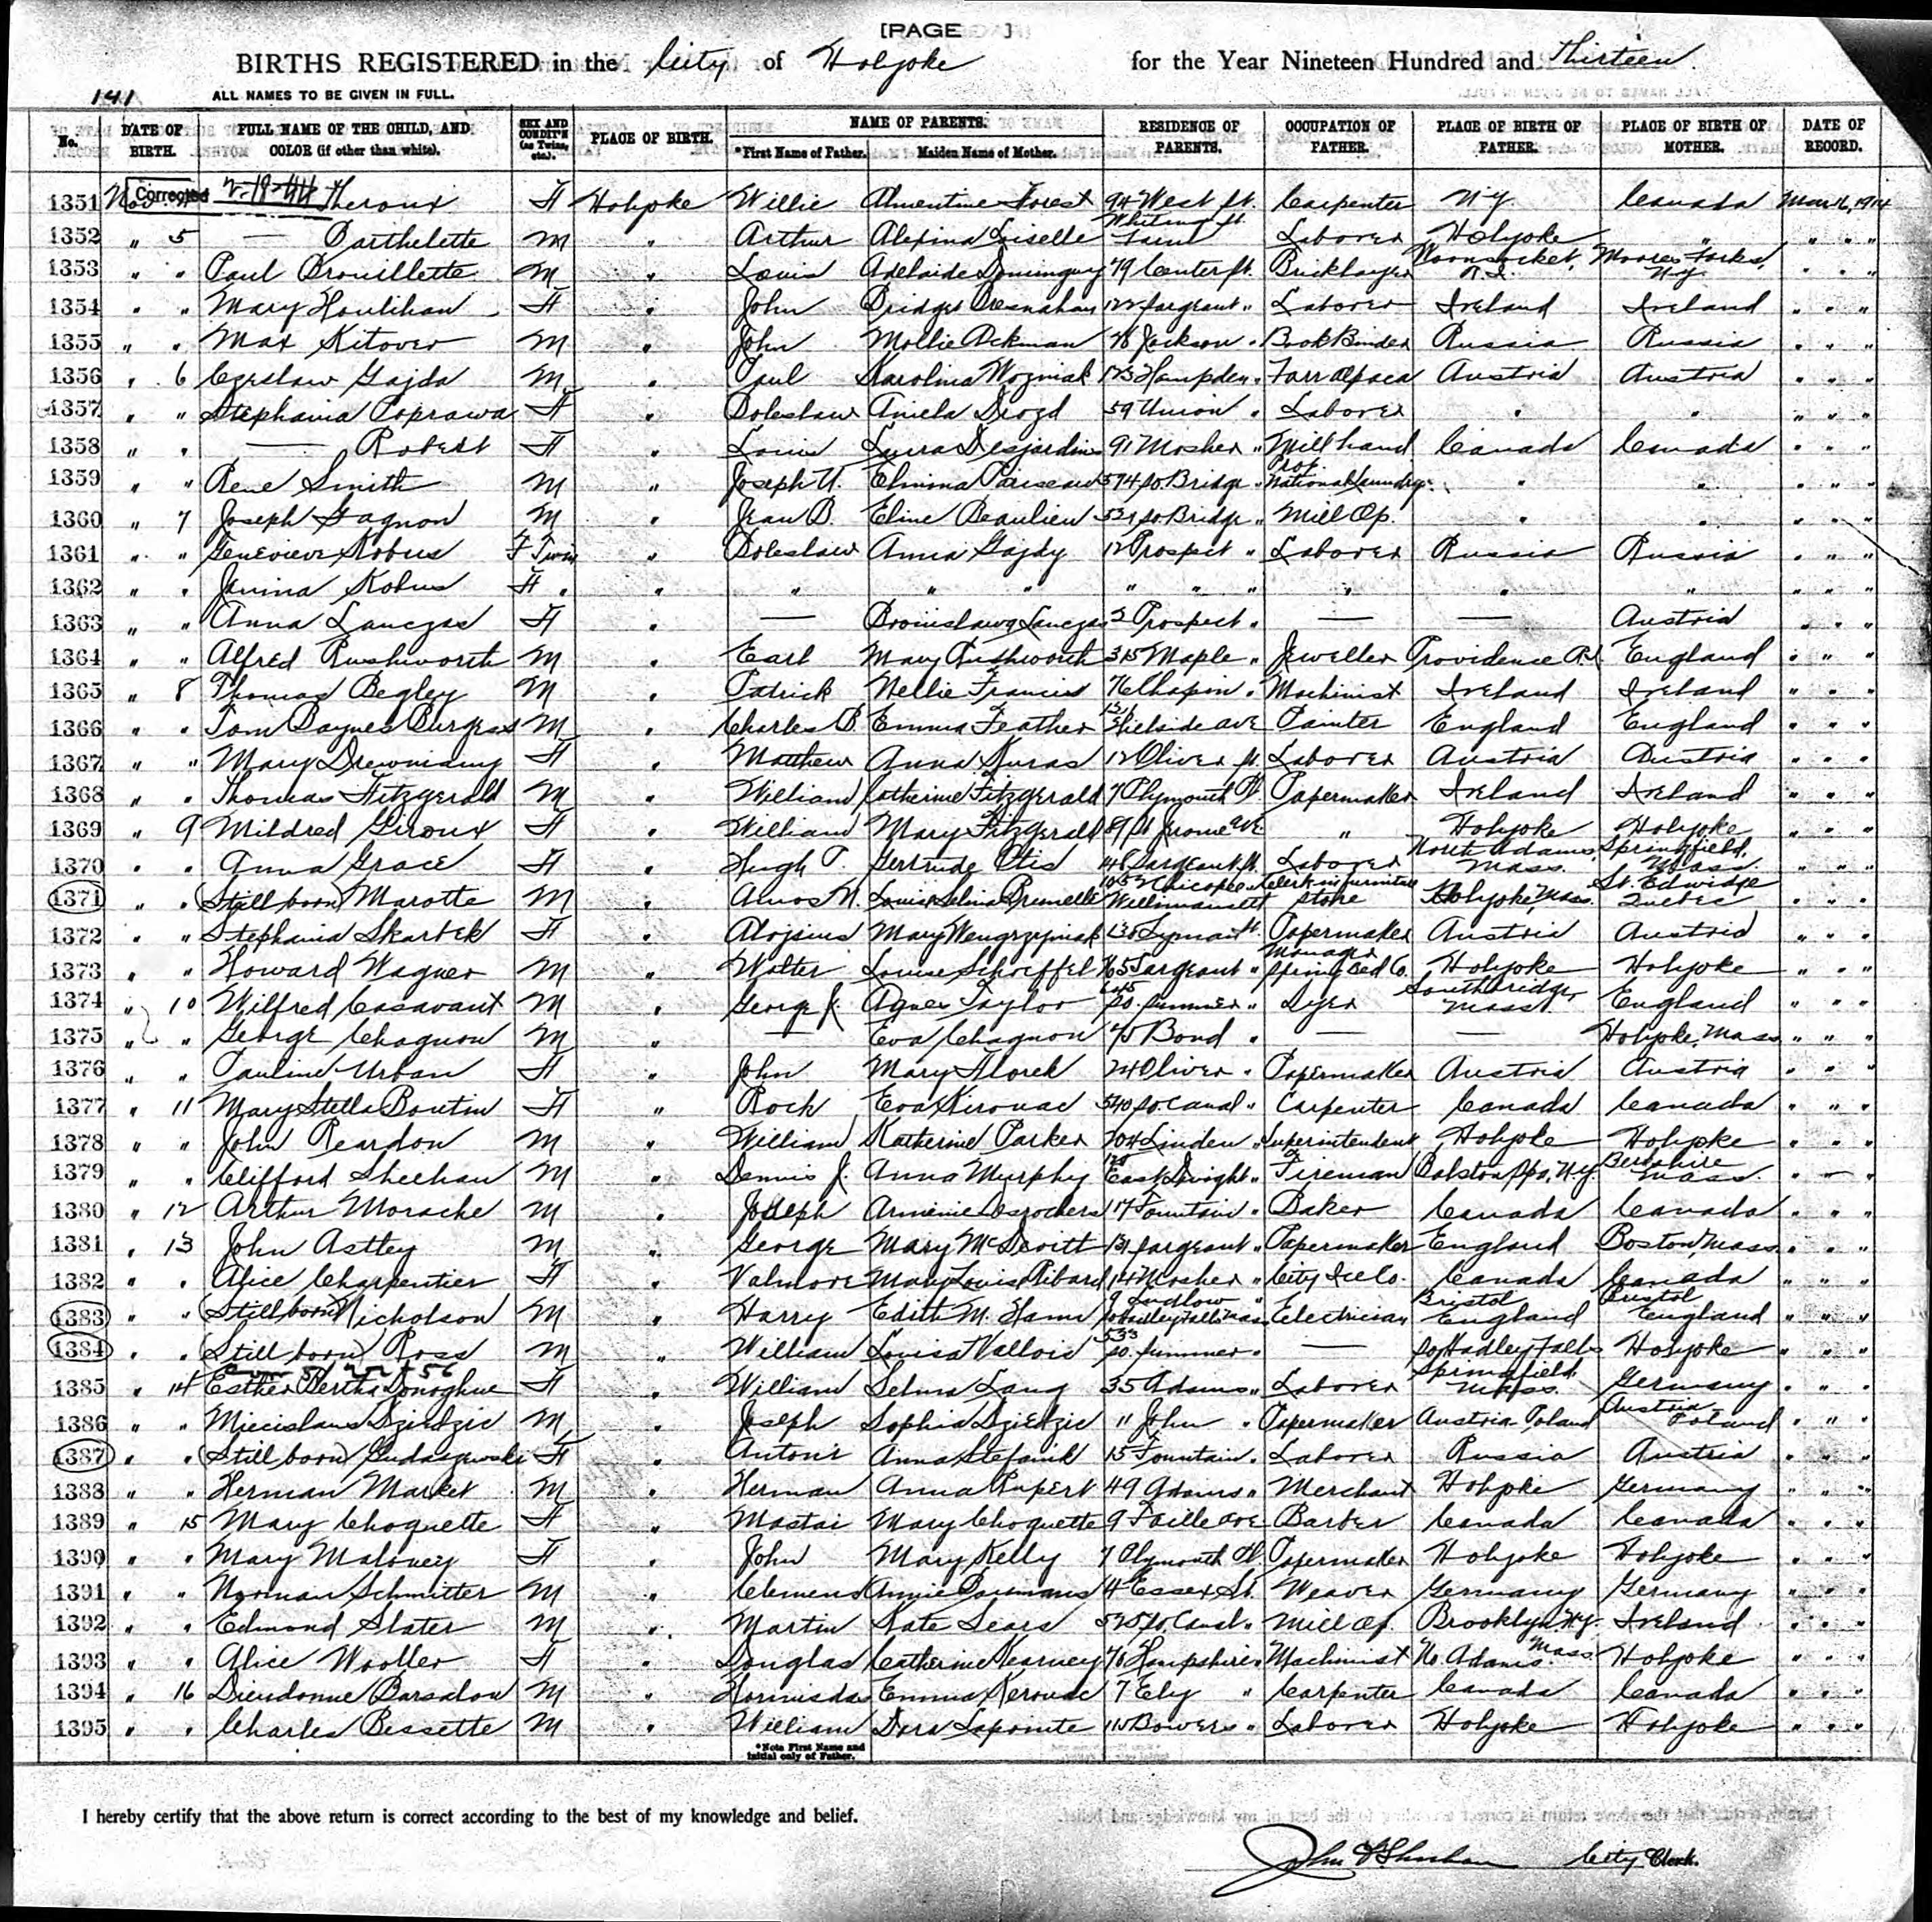 [PAGE ]
BIRTHS REGISTERED in the City of Holyoke for the Year Nineteen Hundred and Thirteen.
141 ALL NAMES TO BE GIVEN IN FULL.
No. DATE OF BIRTH. FULL NAME OF THE CHILD, AND COLOR (if other than white). SEX AND CONDIT'N (as Twins, etc.). PLACE OF BIRTH. NAME OF PARENTS. *First Name of Father. Maiden Name of Mother. RESIDENCE OF PARENTS. OCCUPATION OF FATHER. PLACE OF BIRTH OF FATHER. PLACE OF BIRTH OF MOTHER. DATE OF RECORD.
1351 Nov. Corrected 2-19-44 Theroux F Holyoke Willie Almentine Forest 94 West St. Carpenter N.Y. Canada Mar 16, 1914
1352 " 5 — Barthelette M " Arthur Alexina Liselle Whiting St. Farm Laborer Holyoke " " " "
1353 " " Paul Brouillette M " Louis Adelaide Dominguy 79 Center St. Bricklayer Woonsocket, R.I. Mooers Forks, N.Y. " " "
1354 " " Mary Houlihan F " John Bridget Bresnahan 122 Sargeant " Laborer Ireland Ireland " " "
1355 " " Max Kitover M " John Mollie Ackman 76 Jackson " Book Binder Russia Russia " " "
1356 " 6 Czeslaw Gajda M " Paul Karolina Wozniak 173 Hampden " Farr Alpaca Austria Austria " " "
1357 " " Stephania Poprawa F " Boleslaw Aniela Drozd 59 Union " Laborer " " " " "
1358 " " — Robert F " Louis Laura Desjardins 91 Mosher " Mill hand Canada Canada " " "
1359 " " Rene Smith M " Joseph U. Elmina Pariseau 574 So. Bridge " Prop. National Laundry " " " " "
1360 " 7 Joseph Gagnon M " Jean B. Eline Beaulieu 521 So. Bridge " Mill Op. " " " " "
1361 " " Genevieve Kobus F Twin " Boleslaw Anna Gajdy 12 Prospect " Laborer Russia Russia " " "
1362 " " Janina Kobus F " " " " " " " " " " " " " "
1363 " " Anna Lanczas F " — Bronislawa Lanczas 2 Prospect " — — Austria " " "
1364 " " Alfred Rushworth M " Earl Mary Rushworth 315 Maple " Jeweller Providence R.I. England " " "
1365 " 8 Thomas Begley M " Patrick Nellie Francis 76 Chapin " Machinist Ireland Ireland " " "
1366 " " Tom Baynes Burgess M " Charles B. Emma Feather Hillside Ave Painter England England " " "
1367 " " Mary Drewniany F " Matthew Anna Kuras 12 Oliver St. Laborer Austria Austria " " "
1368 " " Thomas Fitzgerald M " William Catherine Fitzgerald 7 Plymouth Pl. Papermaker Ireland Ireland " " "
1369 " 9 Mildred Giroux F " William Mary Fitzgerald 89 St Jerome Ave " Holyoke Holyoke " " "
1370 " " Anna Grace F " Hugh P. Gertrude Otis 148 Sargeant St. Laborer North Adams, Mass. Springfield, Mass " " "
1371 " " (Still born) Marotte M " Amos N. Louise Selina Brunelle Chicopee St Willimansett Clerk in furniture store Holyoke, Mass. St. Edwidge Quebec " " "
1372 " " Stephania Skartek F " Alojsius Mary Wengrzyniak 130 Lyman St. Papermaker Austria Austria " " "
1373 " " Howard Wagner M " Walter Louise Schoeffel 165 Sargeant " Manager Spring Bed Co. Holyoke Holyoke " " "
1374 " 10 Wilfred Casavant M " George J. Agnes Taylor 645 So. Summer " Dyer Southbridge, Mass. England " " "
1375 " " George Chagnon M " — Eva Chagnon 45 Bond " — — Holyoke, Mass " " "
1376 " " Pauline Urban F " John Mary Florek 24 Oliver " Papermaker Austria Austria " " "
1377 " 11 Mary Stella Boutin F " Rock Eva Kirouac 540 So. Canal " Carpenter Canada Canada " " "
1378 " " John Reardon M " William Katherine Parker 204 Linden " Superintendent Holyoke Holyoke " " "
1379 " " Clifford Sheehan M " Dennis J. Anna Murphy East Dwight " Fireman Balston Spa, N.Y. Berkshire Mass. " " "
1380 " 12 Arthur Morache M " Joseph Armenie Desrochers 17 Fountain " Baker Canada Canada " " "
1381 " 13 John Astley M " George Mary McDevitt 131 Sargeant " Papermaker England Boston, Mass. " " "
1382 " " Alice Charpentier F " Valmore Mary Louise Ribard 114 Mosher " City Ice Co. Canada Canada " " "
1383 " " (Still born) Nicholson M " Harry Edith M. Hann 9 Ludlow " So Hadley Falls Mass Electrician Bristol England Bristol England " " "
1384 " " (Still born) Ross M " William Louisa Vallois 533 So. Summer " — So Hadley Falls Holyoke " " "
1385 " 14 Esther Bertha Donoghue F " William Selma Lang 35 Adams " Laborer Springfield, Mass. Germany " " "
1386 " " Miecislaus Dziedzic M " Joseph Sophia Dziedzic 11 John " Papermaker Austria Poland Austria Poland " " "
1387 " " (Still born) Gudaszewski F " Antoni Anna Stefanik 15 Fountain " Laborer Russia Austria " " "
1388 " " Herman Market M " Herman Anna Rupert 49 Adams " Merchant Holyoke Germany " " "
1389 " 15 Mary Choquette F " Mastai Mary Choquette 9 Faille Ave Barber Canada Canada " " "
1390 " " Mary Maloney F " John Mary Kelly 7 Plymouth Pl. Papermaker Holyoke Holyoke " " "
1391 " " Norman Schmitter M " Clemens Annie 4 Essex St. Weaver Germany Germany " " "
1392 " " Edmond Slater M " Martin Kate Sears 525 So. Canal " Mill Op. Brooklyn N.Y. Ireland " " "
1393 " " Alice Wooller F " Douglas Catherine Kearney 76 Hampshire " Machinist No. Adams Mass. Holyoke " " "
1394 " 16 Dieudonne Barsalou M " Hormisdas Emma Kerouac 7 Ely " Carpenter Canada Canada " " "
1395 " " Charles Bessette M " William Dora Lapointe 115 Bowers " Laborer Holyoke Holyoke " " "
*Note First Name and initial only of Father.
I hereby certify that the above return is correct according to the best of my knowledge and belief.
John F Sheehan City Clerk.